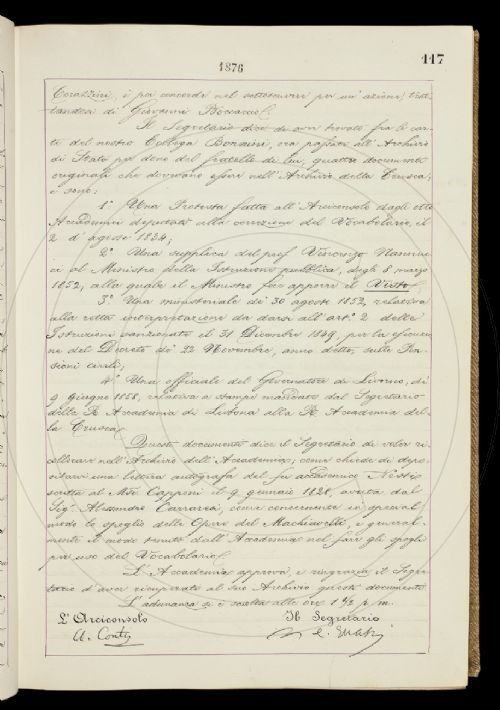 117
1876
Corazzini, è poi concorde nel sottoscrivere per un' azione, trat-
tandosi di Giovanni Boccaccio.
Il Segretario dice di aver trovato fra le car-
te del nostro Collega Bonaini, ora passate all' Archivio
di Stato per dono del fratello di lui, quattro documenti
originali che dovevano essere nell' Archivio della Crusca;
e sono:
1.° Una Protesta fatta all' Arciconsolo dagli otto
Accademici deputati alla correzione del Vocabolario, il
2 d' agosto 1834;
2.° Una supplica del prof. Vincenzo Nannuc-
ci al Ministro della Istruzione pubblica, degli 8 marzo
1852, alla quale il Ministro fece apporre il Visto;
3.° Una ministeriale de' 30 agosto 1852, relativa
alla retta interpretazione da darsi all' art.° 2 delle
Istruzioni sanzionate il 31 Dicembre 1849, per la esecuzio-
ne del Decreto de' 22 Novembre, anno detto, sulle Pen-
sioni civili;
4.° Una officiale del Governatore di Livorno, di
9 giugno 1858, relativa a stampe mandate dal Segretario
della R. Accademia di Lisbona alla R. Accademia del-
la Crusca.
Questi documenti dice il Segretario di voler ri-
collocare nell' Archivio dell' Accademia; come chiede di depo-
sitarvi una lettera autografa del fu accademico
scritta al M.se Capponi il 9 gennaio 1828, avuta dal
Sig.r Alessandro Carraresi, come concernente in special
modo lo spoglio delle Opere del Machiavelli, e general-
mente il modo tenuto dall' Accademia nel fare gli spogli
per uso del Vocabolario.
L' Accademia approva, e ringrazia il Segre-
tario d' aver ricuperato al suo Archivio questi documenti.
L' adunanza si è sciolta alle ore 1 1/2 p. m.
L' Arciconsolo Il Segretario
A. Conti